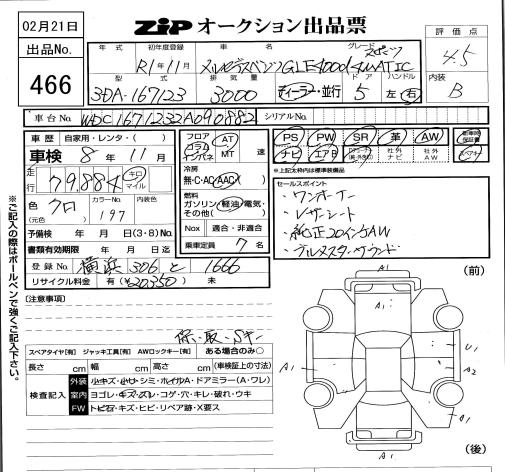 02月21日
ZIP オークション出品票
出品No.
466
評価点
4.5
内装
B
年式 初年度登録 車名 グレード スポーツ
R1年11月 メルセデスベンツ GLE400d 4MATIC
型式 排気量 ドア ハンドル
3DA-167123 3000 ディーラー・並行 5 左・右
車台No. WDC1671232A090882 シリアルNo.
車歴 自家用・レンタ・( )
車検 8年11月
走行 79,884 キロ マイル
色(元色) クロ カラーNo. 197 内装色
予備検 年 月 日(3・8)No.
書類有効期限 年 月 日迄
登録No. 横浜 306 と 1666
リサイクル料金 有(¥20350) 未
フロア コラム インパネ AT MT 速
冷房 無・C・AC・AAC
燃料 ガソリン・軽油・電気・その他( )
Nox 適合・非適合
乗車定員 7名
PS PW SR 革 AW
ナビ エアB 社外ナビ 社外AW
※上記太枠内は標準装備品
セールスポイント
・ワンオーナー
・レザーシート
・純正20インチAW
・ブルメスターサウンド
※ご記入の際はボールペンで強くご記入下さい。
[注意事項]
保・取・Sキー
スペアタイヤ[有] ジャッキ工具[有] AWロックキー[有] ある場合のみ○
長さ cm 幅 cm 高さ cm (車検証上の寸法)
検査記入
外装 小キズ・小凹・シミ・ホイルA・ドアミラー(A・ワレ)
室内 ヨゴレ・キズ・スレ・コゲ・穴・キレ・破れ・ウキ
FW トビ石・キズ・ヒビ・リペア跡・X要ス
(前)
A1
A1
U1
A1
A2
A1
(後)